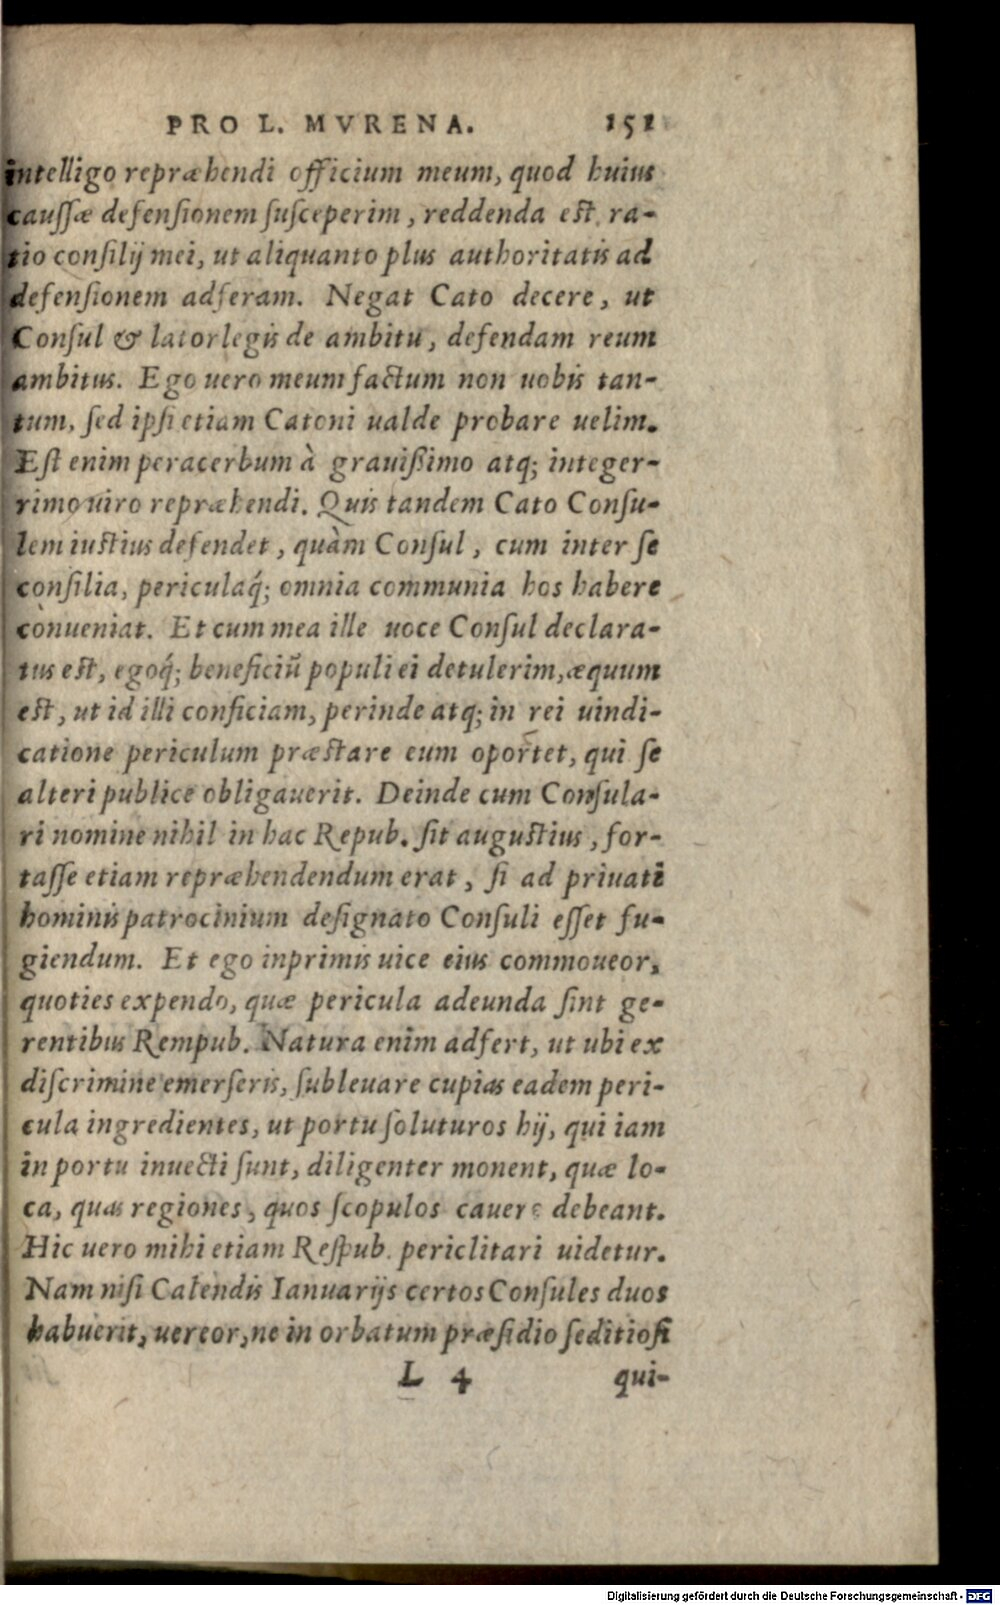 PRO L. MVRENA. 151
intelligo repræhendi officium meum, quod huius
cauſſæ defenſionem ſuſceperim, reddenda eſt ra-
tio conſilij mei, ut aliquanto plus authoritatis ad
defenſionem adferam. Negat Cato decere, ut
Conſul & lator legis de ambitu, defendam reum
ambitus. Ego uero meum factum non uobis tan-
tum, ſed ipſi etiam Catoni ualde probare uelim.
Eſt enim peracerbum à grauißimo atq; integer-
rimo uiro repræhendi. Quis tandem Cato Conſu-
lem iuſtius defendet, quàm Conſul, cum inter ſe
conſilia, periculaq́; omnia communia hos habere
conueniat. Et cum mea ille uoce Conſul declara-
tus eſt, egoq́; beneficiũ populi ei detulerim, æquum
eſt, ut id illi conficiam, perinde atq; in rei uindi-
catione periculum præſtare eum oportet, qui ſe
alteri publice obligauerit. Deinde cum Conſula-
ri nomine nihil in hac Repub. ſit auguſtius, for-
taſſe etiam repræhendendum erat, ſi ad priuati
hominis patrocinium deſignato Conſuli eſſet fu-
giendum. Et ego inprimis uice eius commoueor,
quoties expendo, quæ pericula adeunda ſint ge-
rentibus Rempub. Natura enim adfert, ut ubi ex
diſcrimine emerſeris, ſubleuare cupias eadem peri-
cula ingredientes, ut portu ſoluturos hij, qui iam
in portu inuecti ſunt, diligenter monent, quæ lo-
ca, quas regiones, quos ſcopulos cauere debeant.
Hic uero mihi etiam Reſpub. periclitari uidetur.
Nam niſi Calendis Ianuarijs certos Conſules duos
habuerit, uereor, ne in orbatum præſidio ſeditioſi
L 4 qui-
Digitalisierung gefördert durch die Deutsche Forschungsgemeinschaft - DFG